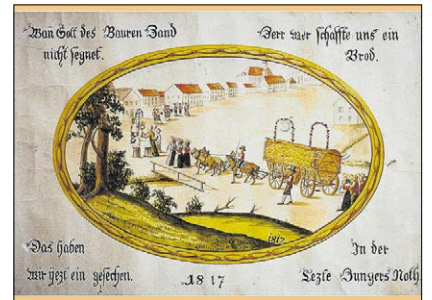 Wan Gott des Bauren Hand
nicht segnet.
Herr wer schaffte uns ein
Brod.
1817
Das haben
wir yezt ein gesechen.
1817
In der
Lezte Hungers Noth.